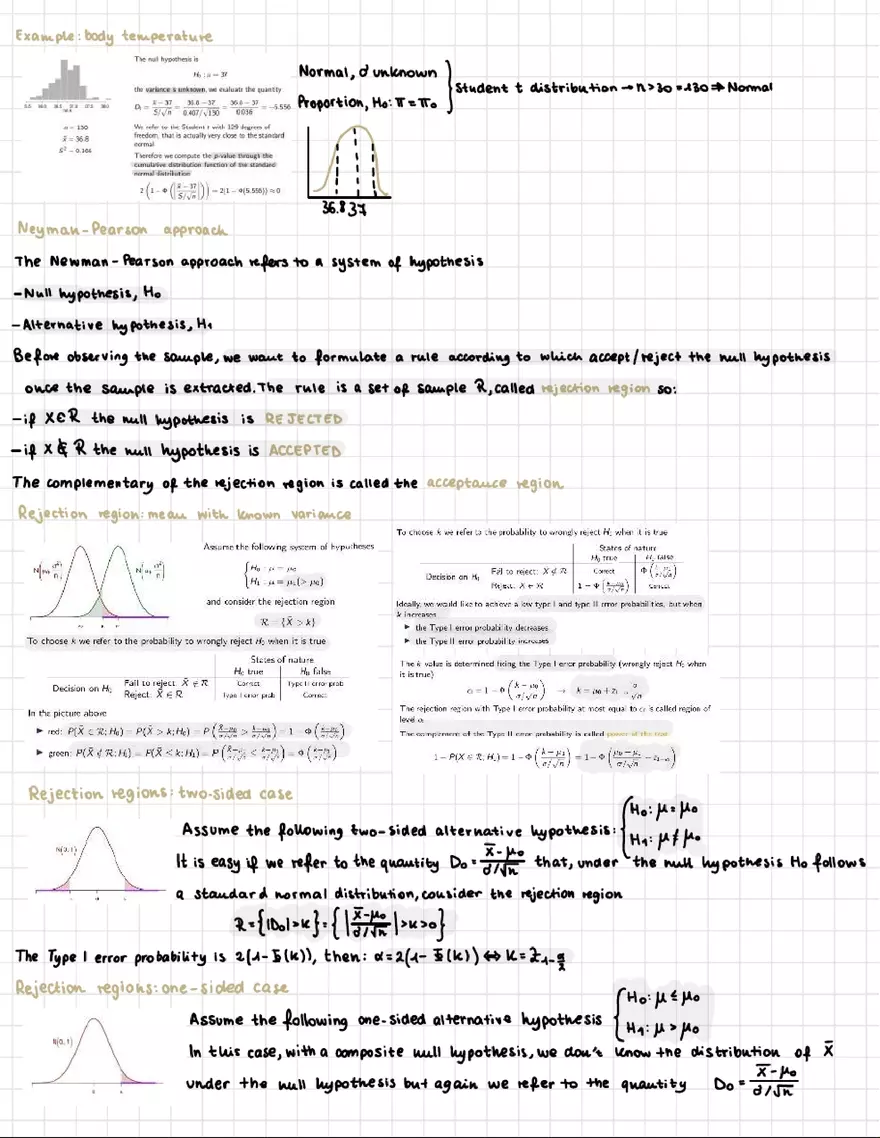 Example: body temperature
The null hypothesis is
H₀ : μ = 37
the variance is unknown, we evaluate the quantity
D₀ = (x̄ − 37)/(S/√n) = (36.8 − 37)/(0.407/√130) = (36.6 − 37)/0.036 = −5.556
We refer to the Student t with 129 degrees of
freedom, that is actually very close to the standard
normal
Therefore we compute the p-value through the
cumulative distribution function of the standard
normal distribution
2(1 − Φ(|(x̄ − 37)/(S/√n)|)) = 2(1 − Φ(5.555)) ≈ 0
n = 130
x̄ = 36.8
Normal, σ unknown
Proportion, H₀: π = π₀
Student t distribution → n>30 = 130 ⇒ Normal
36.8 37
Neyman-Pearson approach
The Newman-Pearson approach refers to a system of hypothesis
-Null hypothesis, H₀
-Alternative hypothesis, H₁
Before observing the sample, we want to formulate a rule according to which accept/reject the null hypothesis
once the sample is extracted. The rule is a set of sample R, called rejection region so:
-if X∈R the null hypothesis is REJECTED
-if X∉R the null hypothesis is ACCEPTED
The complementary of the rejection region is called the acceptance region
Rejection region: mean with known variance
Assume the following system of hypotheses
{H₀ : μ = μ₀
H₁ : μ = μ₁(> μ₀)
and consider the rejection region
R = {X̄ > k}
To choose k we refer to the probability to wrongly reject H₀ when it is true
States of nature
H₀ true H₀ false
Decision on H₀
Fail to reject: X̄ ∉ R Correct Type II error prob
Reject: X̄ ∈ R Type I error prob Correct
In the picture above
▶ red: P(X̄ ∈ R; H₀) = P(X̄ > k; H₀) = P((X̄−μ₀)/(σ/√n) > (k−μ₀)/(σ/√n)) = 1 − Φ((k−μ₀)/(σ/√n))
▶ green: P(X̄ ∉ R; H₁) = P(X̄ ≤ k; H₁) = P((X̄−μ₁)/(σ/√n) ≤ (k−μ₁)/(σ/√n)) = Φ((k−μ₁)/(σ/√n))
To choose k we refer to the probability to wrongly reject H₀ when it is true
States of nature
H₀ true H₀ false
Decision on H₀
Fail to reject: X ∉ R Correct Φ((k−μ₁)/(σ/√n))
Reject: X ∈ R 1 − Φ((k−μ₀)/(σ/√n)) Correct
Ideally, we would like to achieve a low type I and type II error probabilities, but when
k increases
▶ the Type I error probability decreases
▶ the Type II error probability increases
The k value is determined fixing the Type I error probability (wrongly reject H₀ when
it is true)
α = 1 − Φ((k − μ₀)/(σ/√n)) → k = μ₀ + z₁₋α σ/√n
The rejection region with Type I error probability at most equal to α is called region of
level α
The complement of the Type II error probability is called power of the test
1 − P(X ∉ R; H₁) = 1 − Φ((k − μ₁)/(σ/√n)) = 1 − Φ((μ₀ − μ₁)/(σ/√n) − z₁₋α)
Rejection regions: two-sided case
N(0,1)
Assume the following two-sided alternative hypothesis: {H₀: μ = μ₀
H₁: μ ≠ μ₀
It is easy if we refer to the quantity D₀ = (X̄ − μ₀)/(σ/√n) that, under the null hypothesis H₀ follows
a standard normal distribution, consider the rejection region
R = {|D₀| > k} = {|(X̄ − μ₀)/(σ/√n)| > k > 0}
The Type I error probability is 2(1-Φ(k)), then: α = 2(1- Φ(k)) ⇔ k = z₁₋α/₂
Rejection regions: one-sided case
N(0,1)
Assume the following one-sided alternative hypothesis {H₀: μ ≤ μ₀
H₁: μ > μ₀
In this case, with a composite null hypothesis, we don't know the distribution of X̄
under the null hypothesis but again we refer to the quantity D₀ = (X̄ − μ₀)/(σ/√n)